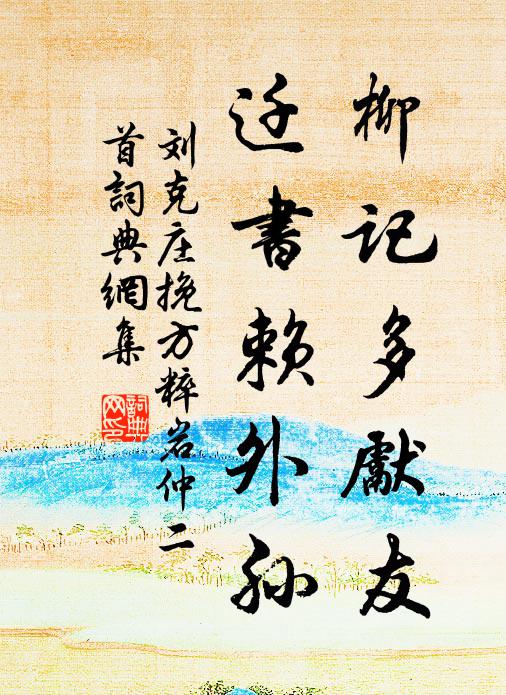 柳记多献友
迁书赖外孙
刘克庄挽方粹岩仲二
首詞典網集
詞典网印